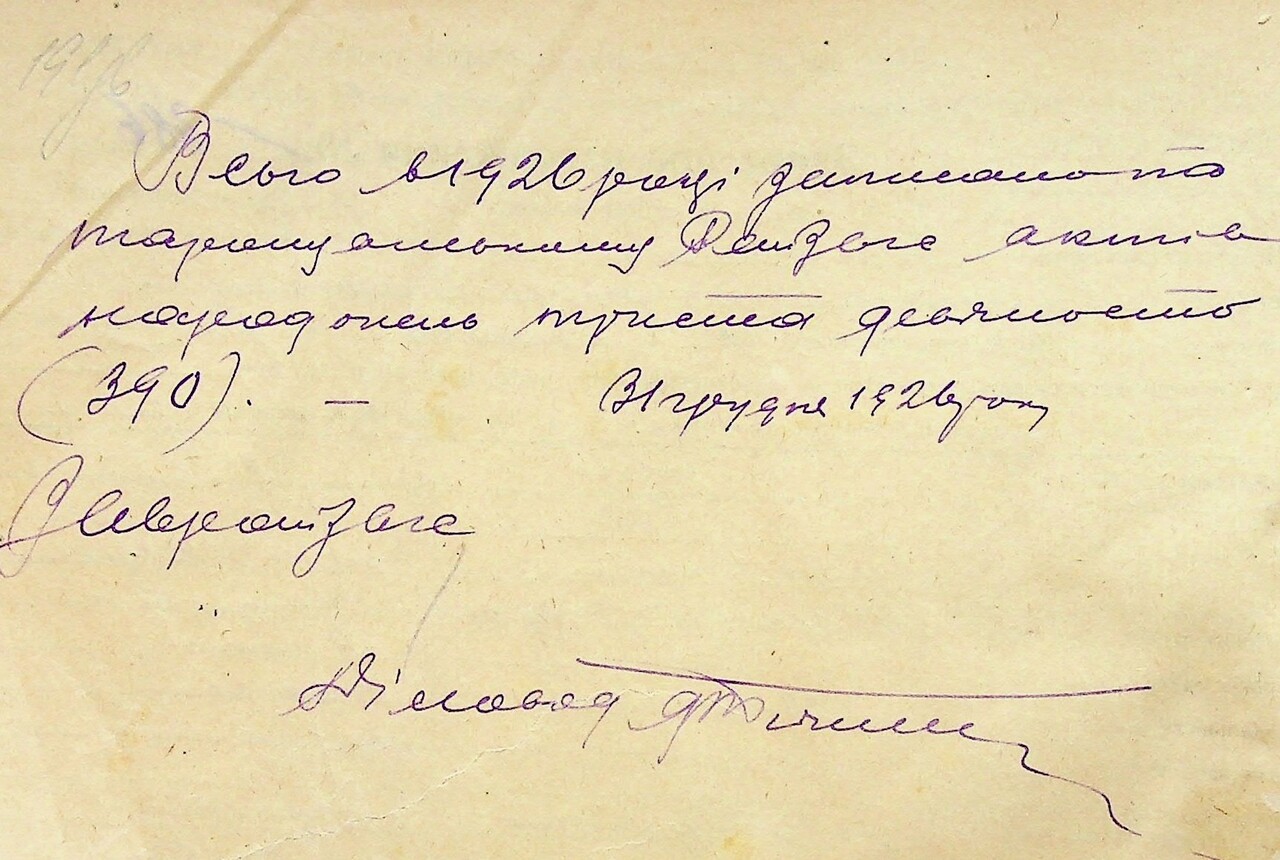 Всього в 1926 році записано по
Таращанському РайЗагс актів
народжень триста девяносто
(390). — 31 грудня 1926 року
ЗавРайЗагс
Діловод